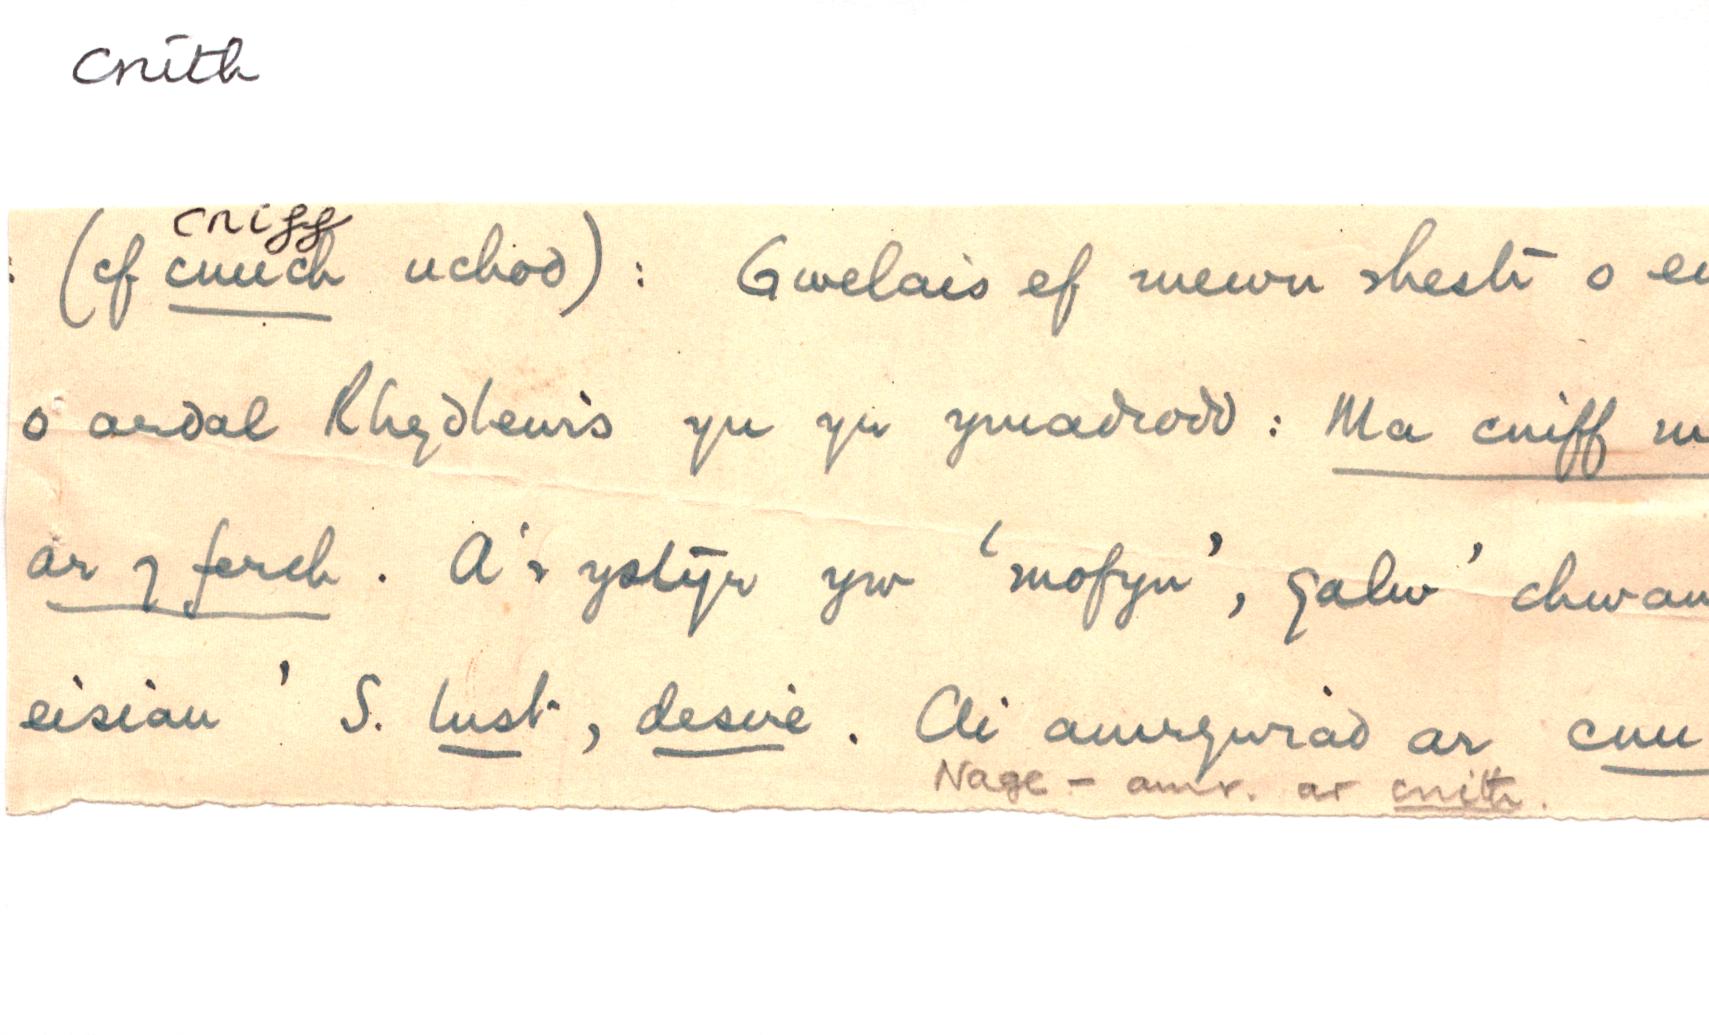 cnith
cniff
: (cf cnuch uchod): Gwelais ef mewn rhestr o
o ardal Rhydlewis yn yr ymadrodd: Ma cniff
ar y ferch. A'r ystyr yw 'mofyn', galw' chwan
eisiau' S. lust, desire. Ai amrywiad ar cnu
Nage - amr. ar cnith.